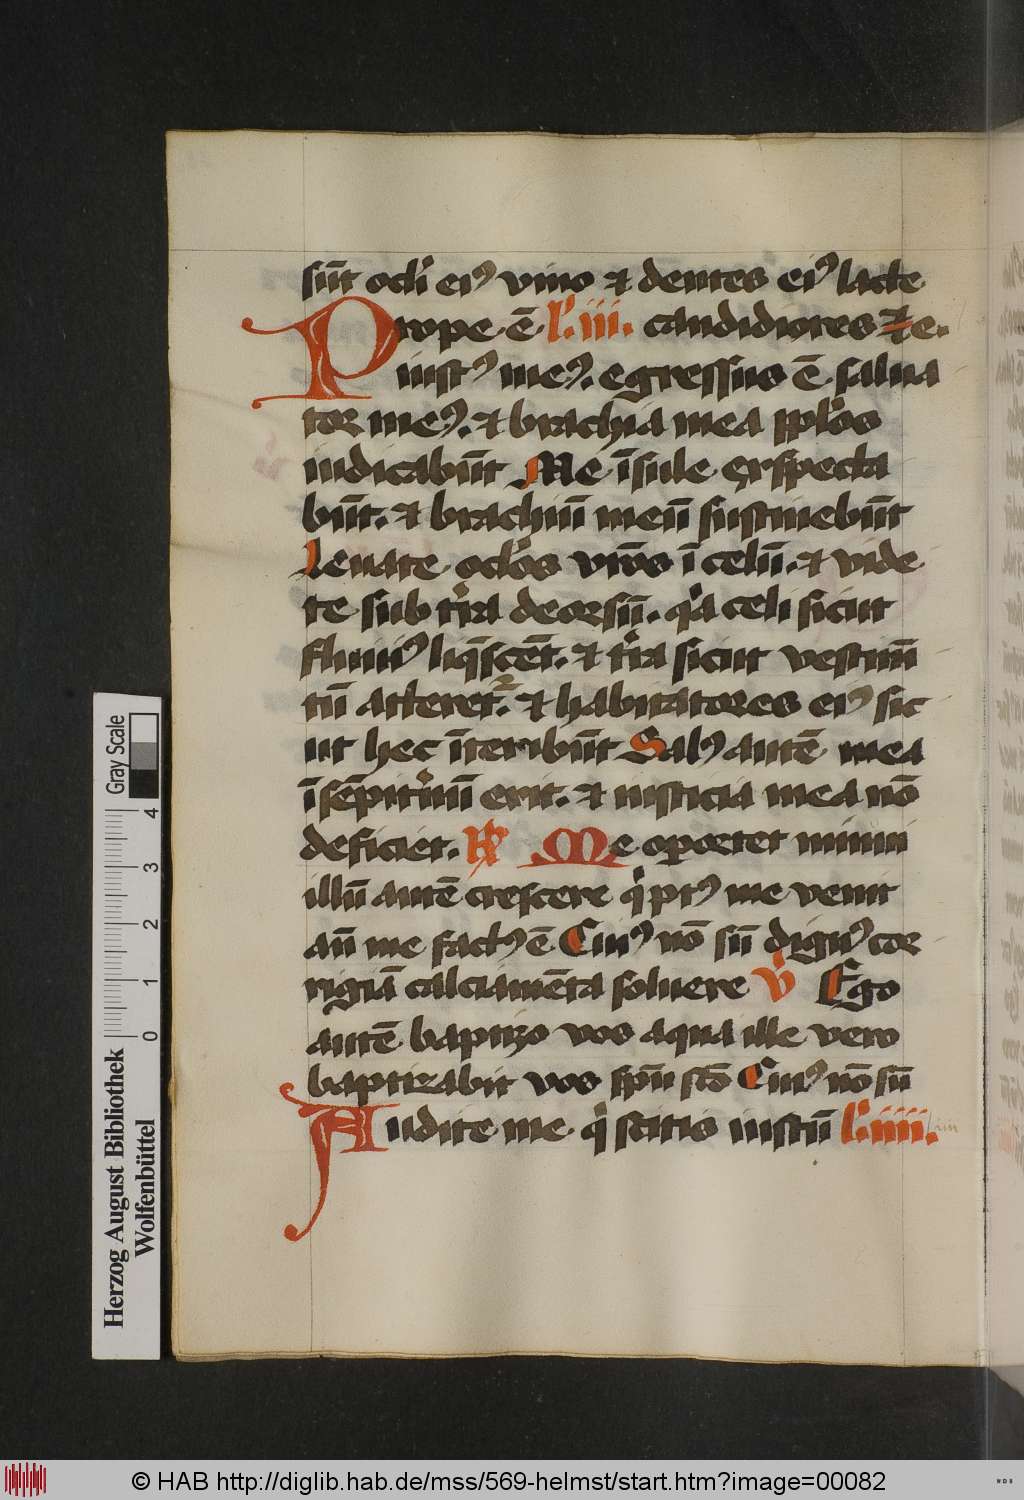 sūt ocłi eiꝰ vino ⁊ dentes eiꝰ lacte
Prope ē. Łꝰ.iii. candidiores ⁊c̄e.
iustꝰ meꝰ. egressus ē salua
tor meꝰ. ⁊ brachia mea ꝑpłos
iudicabūt Me īsule exspecta
būt. ⁊ brachiū meū sustinebūt
Leuate ocłos vr̄os ī celū. ⁊ vide
te sub tr̄ra deorsū. qͣa celi sicut
fluuiꝰ liq̄scēt. ⁊ tr̄ra sicut vestimē
tū atteretᷣ. ⁊ habitatores eiꝰ sic
ut hec īteribūt Salꝰ autē mea
ī sēpitnū erit. ⁊ iusticia mea nō
deficiet. ℟ Me oportet minui
illū autē crescere qͥ ptꝰ me venit
an̄ me factꝰ ē Cuiꝰ nō sū dignꝰ cor
rigiā calciamēta soluere ℣ Ego
autē baptizo vos aqua ille vero
baptizabit vos spū scō Cuiꝰ nō sū
Audite me qͥ scitis iustū Łꝰ.iiii.
Gray Scale
4 3 2 1 0
Herzog August Bibliothek
Wolfenbüttel
© HAB http://diglib.hab.de/mss/569-helmst/start.htm?image=00082